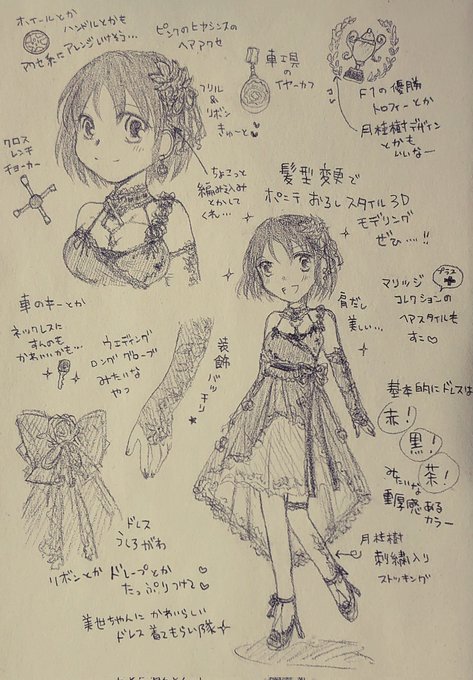 ホイールとか
ハンドルとかも
アクセ系にアレンジいけそう…
ピンクのヒヤシンスの
ヘアアクセ
フリル
&
リボン
きゅーと♥
車工具
の
イヤーカフ
F1の優勝
トロフィーとか
月桂樹デザイン
とかも
いいなー
クロス
レンチ
チョーカー
ちょこっと
編み込み
とかして
くれ…
髪型変更で
ポニテおろしスタイル3D
モデリング
ぜひ…!!
車のキーとか
ネックレスに
すんのも
かわいいかも…
ウエディング
ロンググローブ
みたいな
やつ
装飾バッチリ
肩だし
美しい…
プラス
マリッジ
コレクションの
ヘアスタイルも
すこ♡
基本的にドレスは
赤!
黒!
茶!
みたいな
重厚感ある
カラー
月桂樹
刺繍入り
ストッキング
ドレス
うしろがわ
リボンとかドレープとか
たっぷりつけて
美世ちゃんにかわいらしい
ドレス着てもらい隊